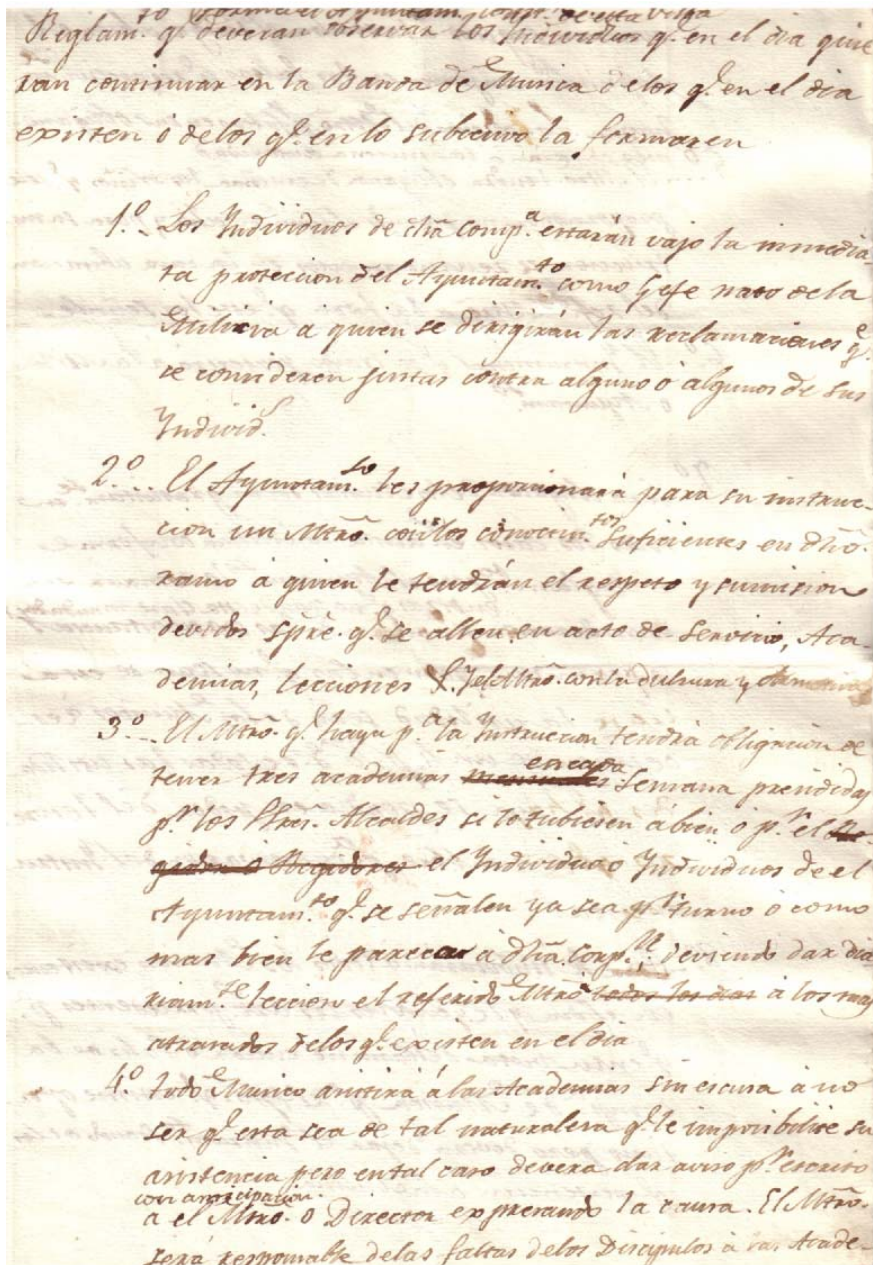 to formado el Ayuntam. Const. de esta villa
Reglam. q.e deveran observar los Individuos q.e en el dia quie
ran continuar en la Banda de Musica de los q.e en el dia
existen ó de los q.e en lo subcecivo la formaren
1.º Los Individuos de dha comp.a estarán vajo la inmedia
ta proteccion del Ayuntam.to como Gefe nato de la
Milicia a quien se dirigirán las reclamaciones q.e
se consideren justas contra alguno ó algunos de sus
Individ.s
2.º El Ayuntam.to les proporcionará para su instruc
cion un Mtrô. con los conocim.tos suficientes en dhô.
ramo á quien le tendrán el respeto y sumision
devidos spre. q.e se allen en acto de servicio, Aca-
demias, lecciones &. y el Mtrô. con la dulzura y
3.º El Mtrô. q.e haya p.a la Instruccion tendrá obligacion de
tener tres academias mensuales en cada Semana presididas
p.r los SSres. Alcaldes si lo tubiesen á bien o p.r el Re-
gidor o Regidores el Individuo ó Individuos de el
Ayuntam.to q.e se señalen ya sea p.r turno ó como
mas bien le parezca á dha. corp.n deviendo dar dia
riam.te leccion el referido Mtrô todos los dias á los mas
atrasados de los q.e existen en el dia
4.º todo Musico asistirá á las Academias sin escusa á no
ser q.e esta sea de tal naturaleza q.e le imposibilite su
asistencia pero en tal caso devera dar aviso p.r escrito
con anticipacion.
a el Mtrô. o Director expresando la causa. El Mtrô.
será responsable de las faltas de los Discipulos á las Acade-